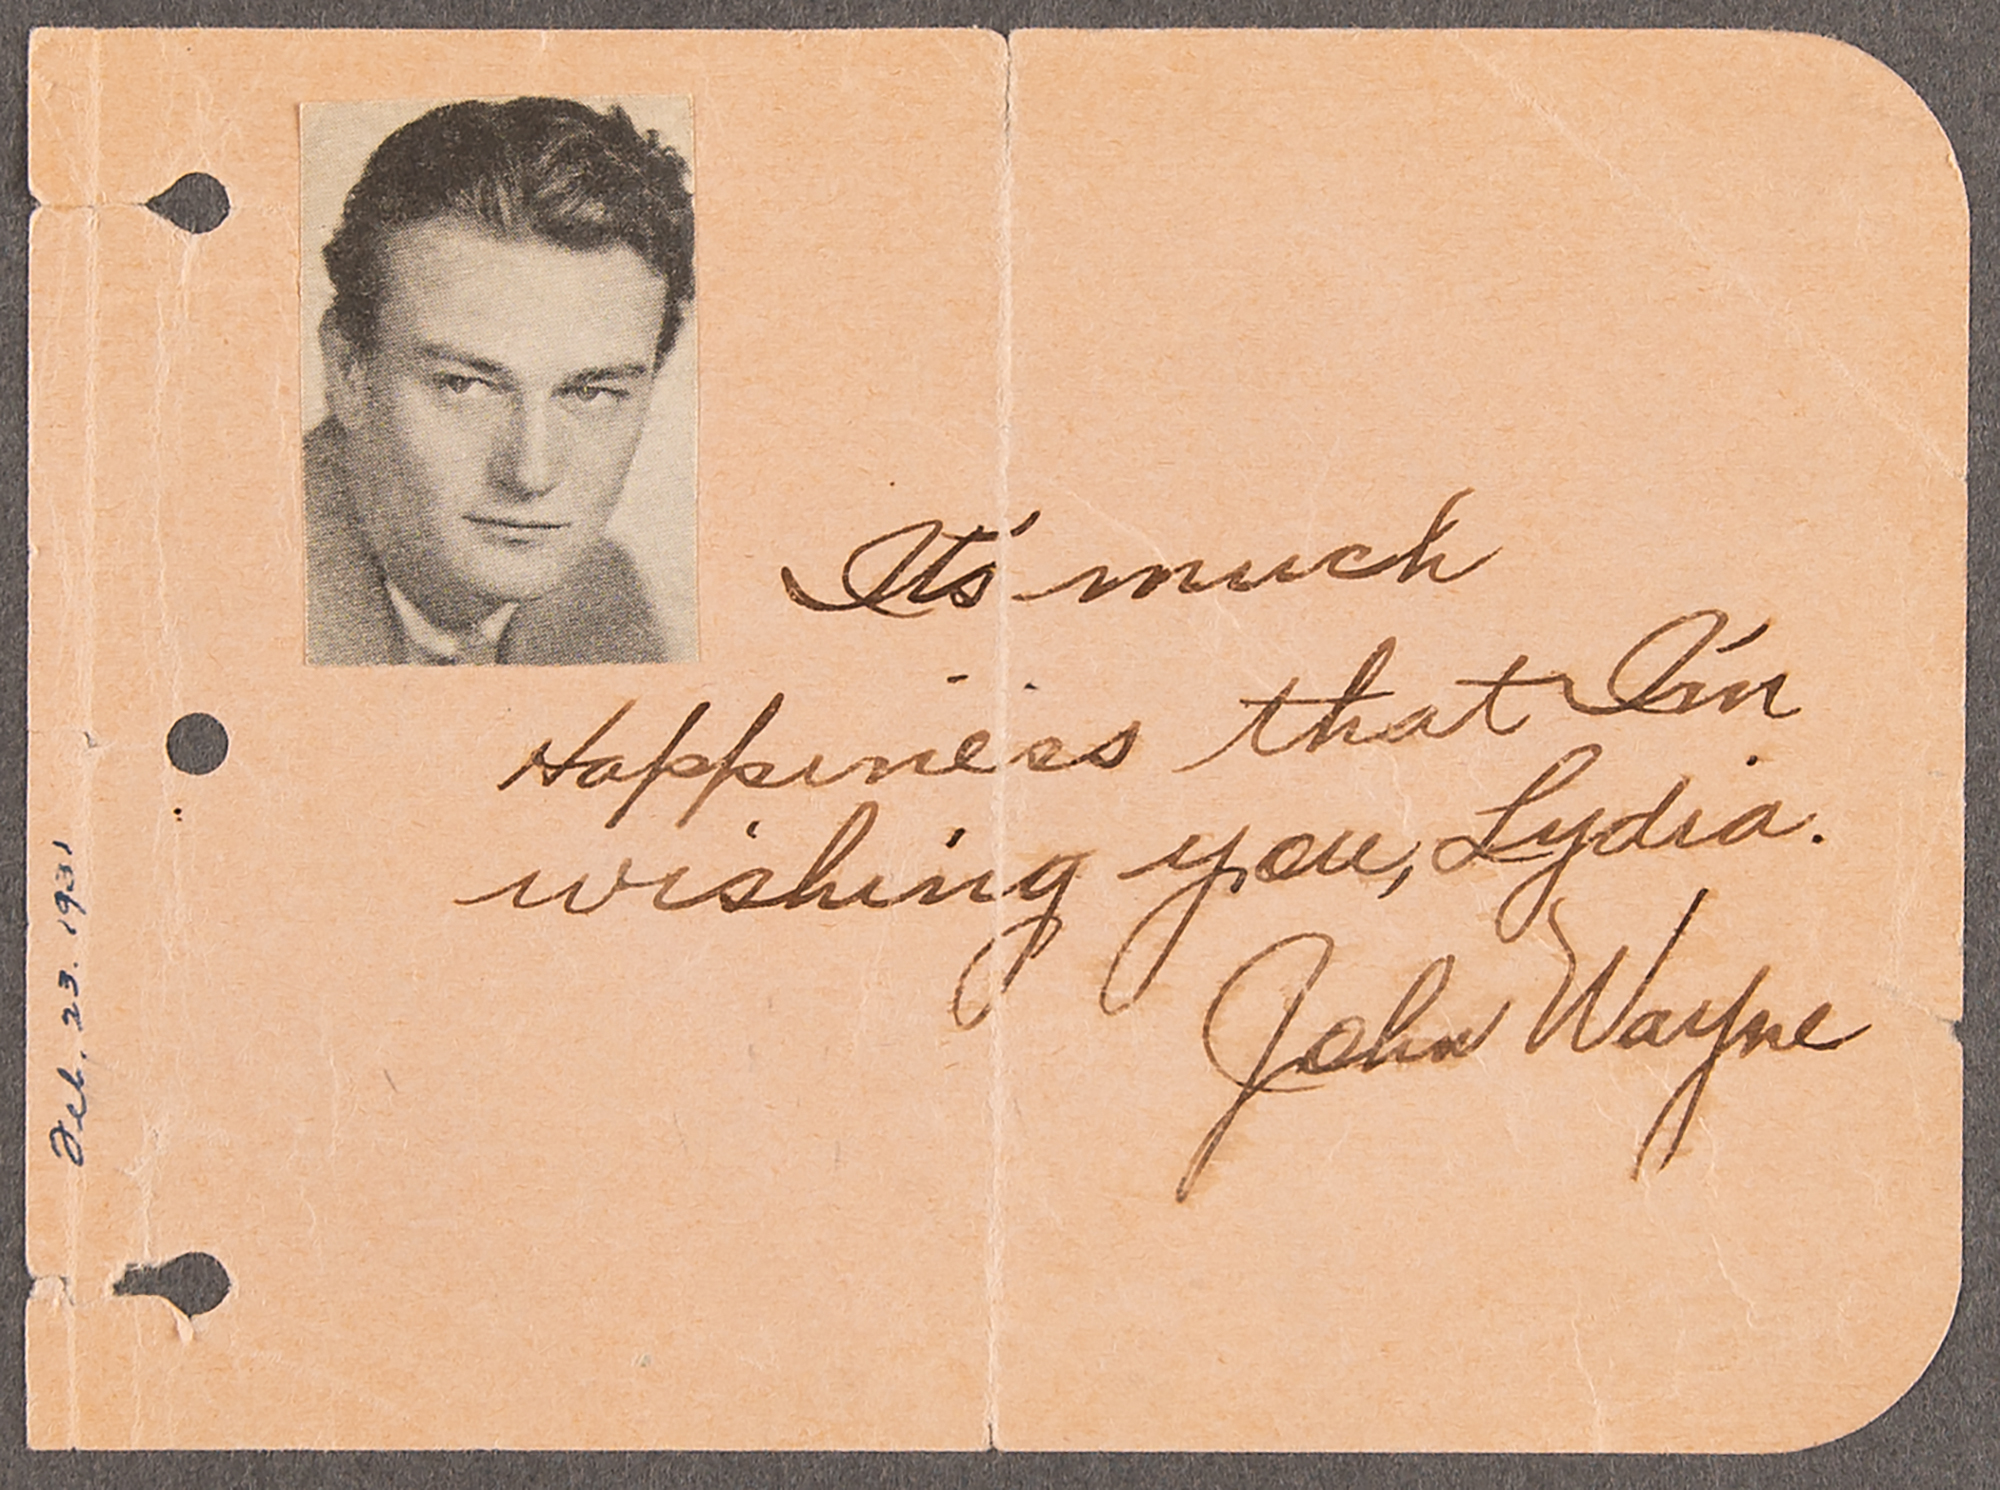 It's much
Happiness that I'm
wishing you, Lydia.
John Wayne
Feb. 23. 1931